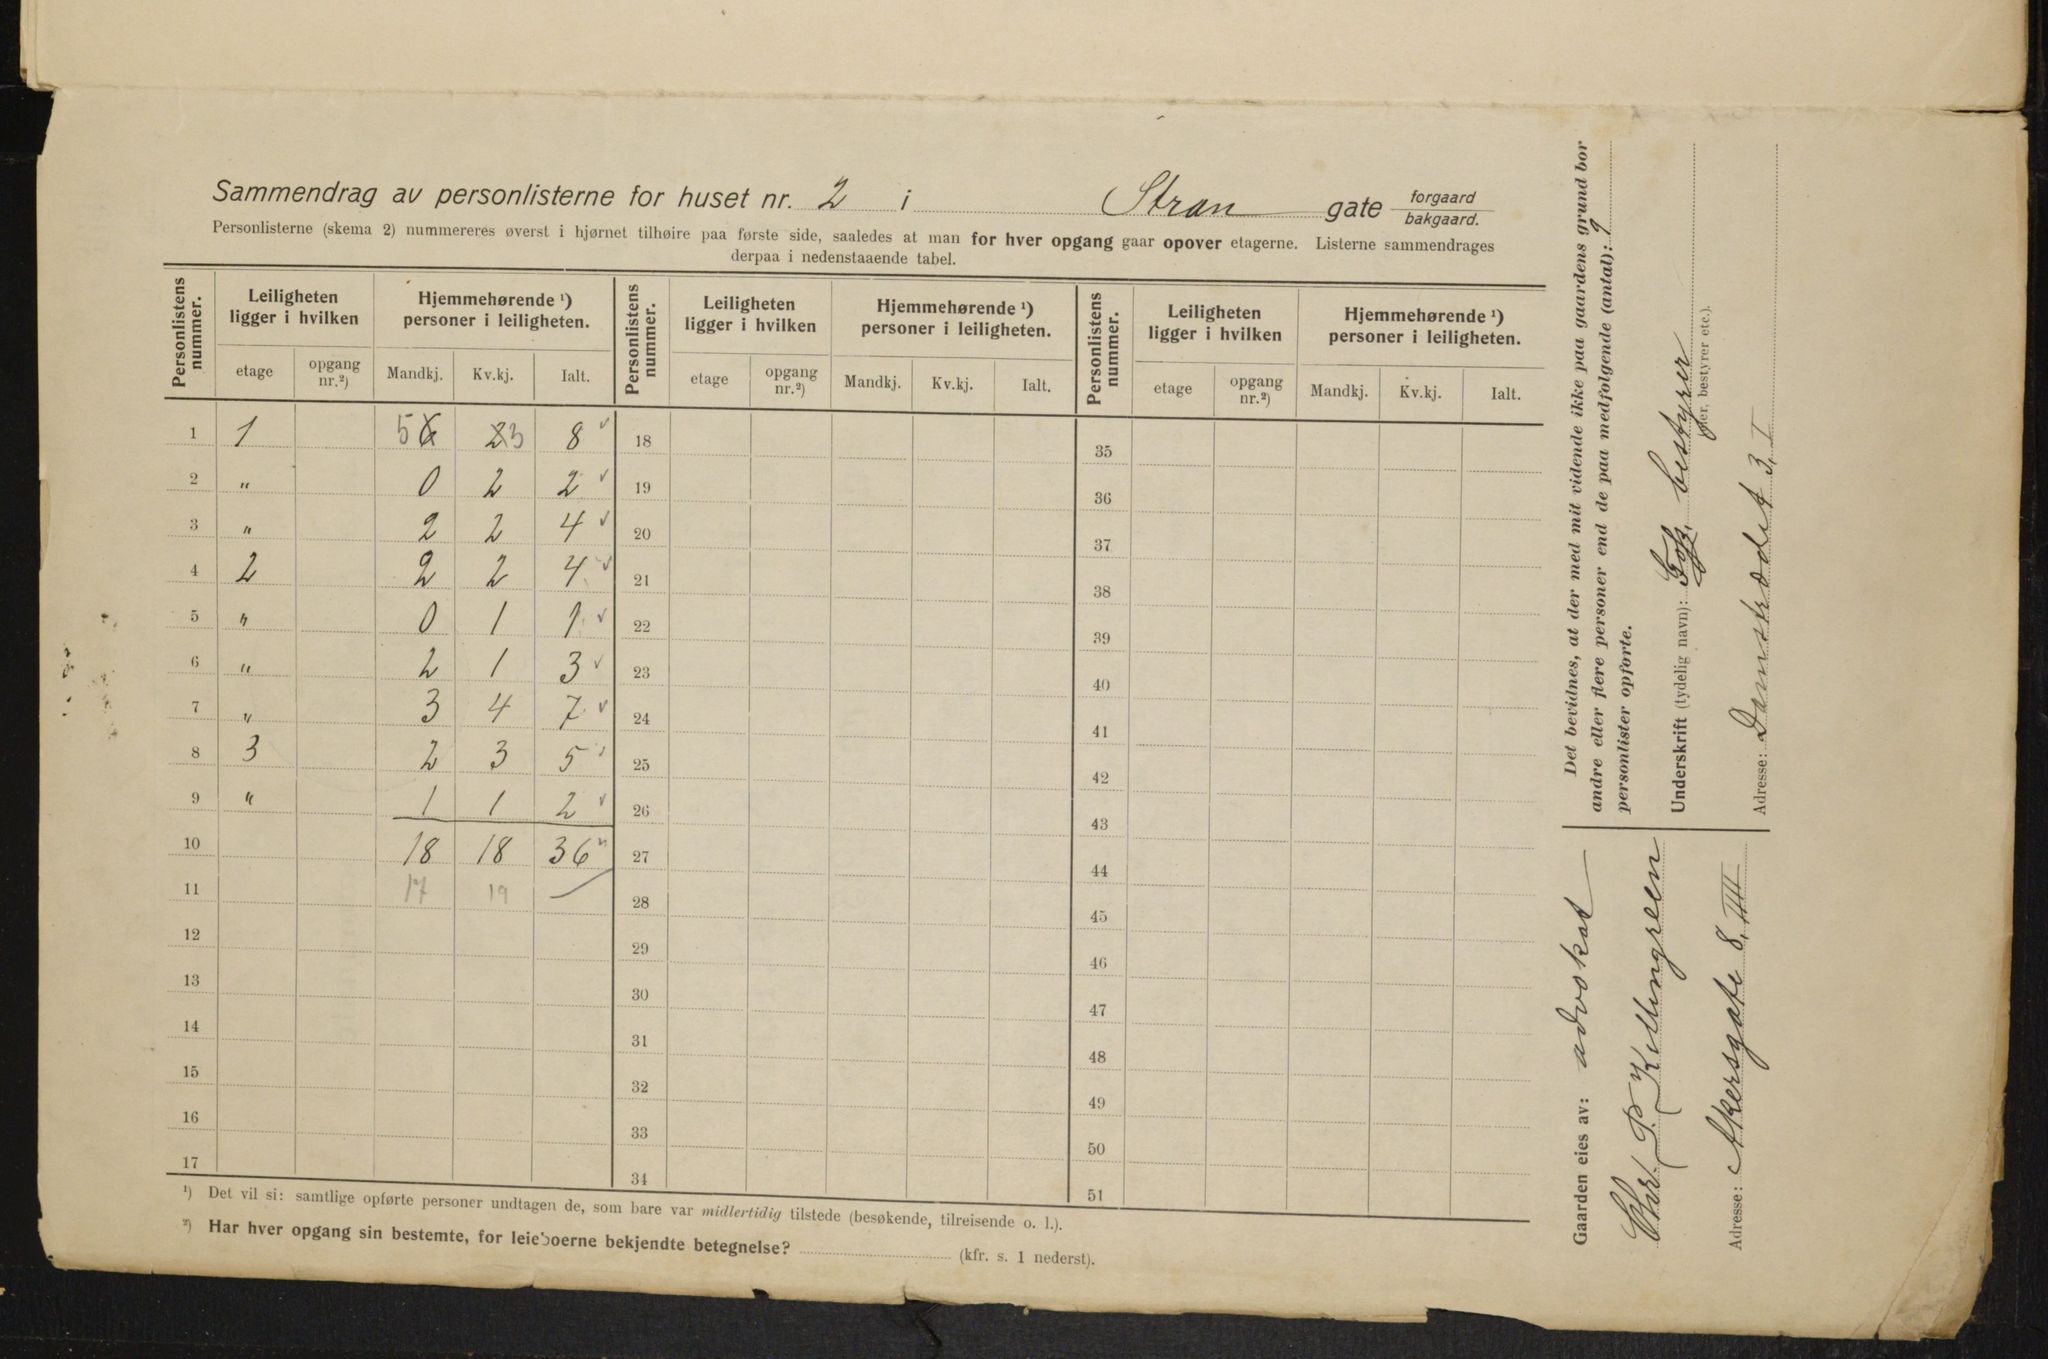 Sammendrag av personlisterne for huset nr. 2 i Stran gate forgaard bakgaard.
Personlisterne (skema 2) nummereres øverst i hjørnet tilhøire paa første side, saaledes at man for hver opgang gaar opover etagerne. Listerne sammendrages
derpaa i nedenstaaende tabel.
Personlistens nummer. Leiligheten ligger i hvilken Hjemmehørende ¹) personer i leiligheten. Personlistens nummer. Leiligheten ligger i hvilken Hjemmehørende ¹) personer i leiligheten. Personlistens nummer. Leiligheten ligger i hvilken Hjemmehørende ¹) personer i leiligheten.
etage opgang nr.²) Mandkj. Kv.kj. Ialt. etage opgang nr.²) Mandkj. Kv.kj. Ialt. etage opgang nr.²) Mandkj. Kv.kj. Ialt.
1 1 5 6 2 3 8 18 35
2 " 0 2 2 19 36
3 " 2 2 4 20 37
4 2 2 2 4 21 38
5 " 0 1 1 22 39
6 " 2 1 3 23 40
7 " 3 4 7 24 41
8 3 2 3 5 25 42
9 " 1 1 2 26 43
10 18 18 36 27 44
11 17 19 28 45
12 29 46
13 30 47
14 31 48
15 32 49
16 33 50
17 34 51
¹) Det vil si: samtlige opførte personer undtagen de, som bare var midlertidig tilstede (besøkende, tilreisende o. l.).
²) Har hver opgang sin bestemte, for leieboerne bekjendte betegnelse? (kfr. s. 1 nederst).
Det bevidnes, at der med mit vidende ikke paa gaardens grund bor
andre eller flere personer end de paa medfølgende (antal): 9
personlister opførte.
Underskrift (tydelig navn): bestyrer
(eier, bestyrer etc.).
Adresse: Damstrædet 3, I
Gaarden eies av: advokat
Chr. P. Killengreen
Adresse: Akersgate 8, III